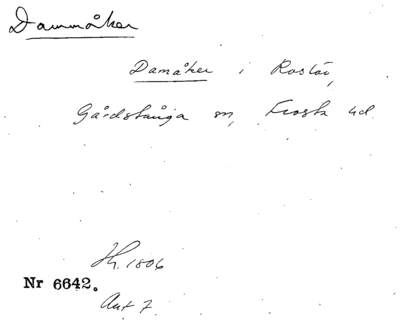 Dammåker
Damåker i Roslöv,
Gårdstånga sn, Frosta hd.
Hh. 1806
Nr 6642.
Akt 7